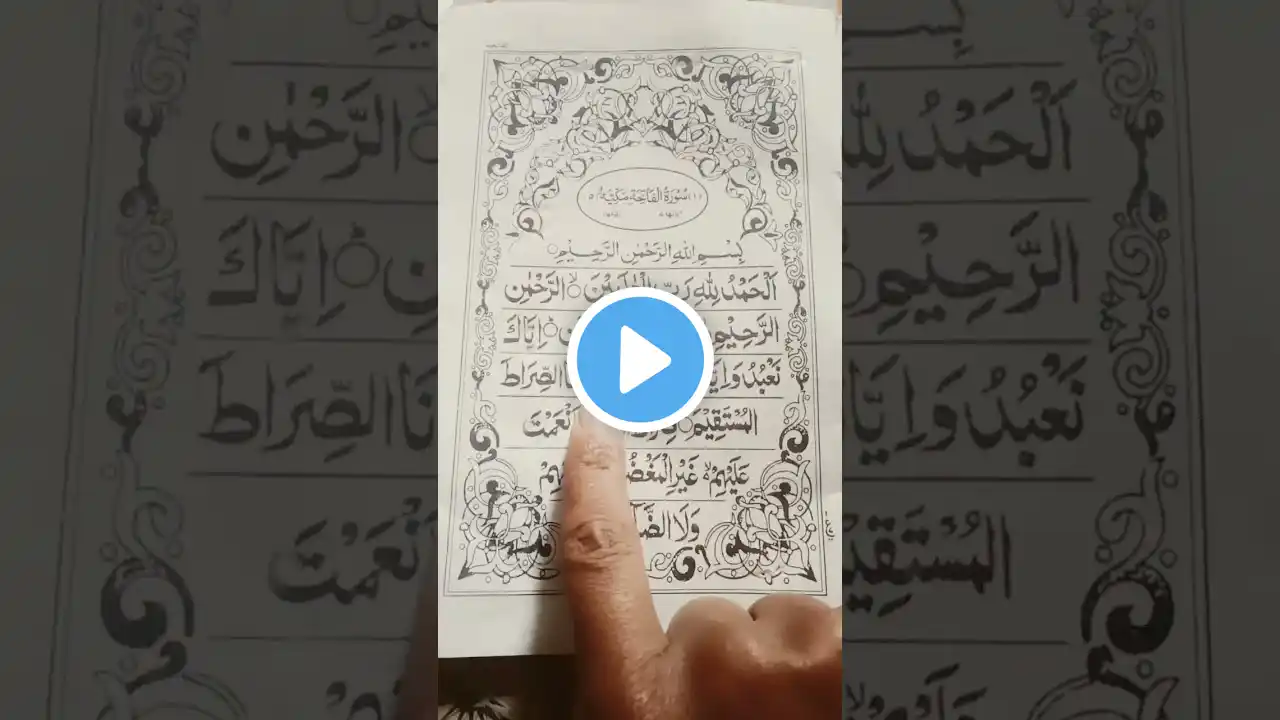 سُوْرَةُ الْفَاتِحَةِ مَكِّيَّةٌ
بِسْمِ اللهِ الرَّحْمٰنِ الرَّحِيْمِ
اَلْحَمْدُ لِلّٰهِ رَبِّ الْعٰلَمِيْنَ ۙ الرَّحْمٰنِ
الرَّحِيْمِ اِيَّاكَ
نَعْبُدُ وَاِيَّا الصِّرَاطَ
الْمُسْتَقِيْمَ نْعَمْتَ
عَلَيْهِمْ ۙ غَيْرِ الْمَغْضُ هِمْ
وَلَا الضَّآ